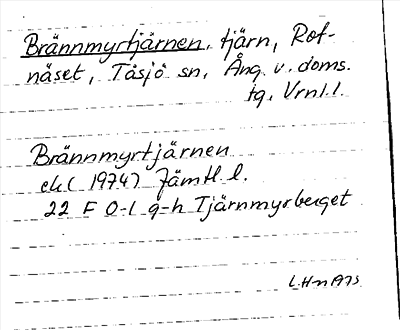 Brännmyrtjärnen, tjärn, Rot-
näset, Tåsjö sn, Ång. v. doms.
tg, Vrnl.l.
Brännmyrtjärnen
ek( 1974) Jämtl l.
22 F 0-1 g-h Tjärnmyrberget
L.Hn 1975